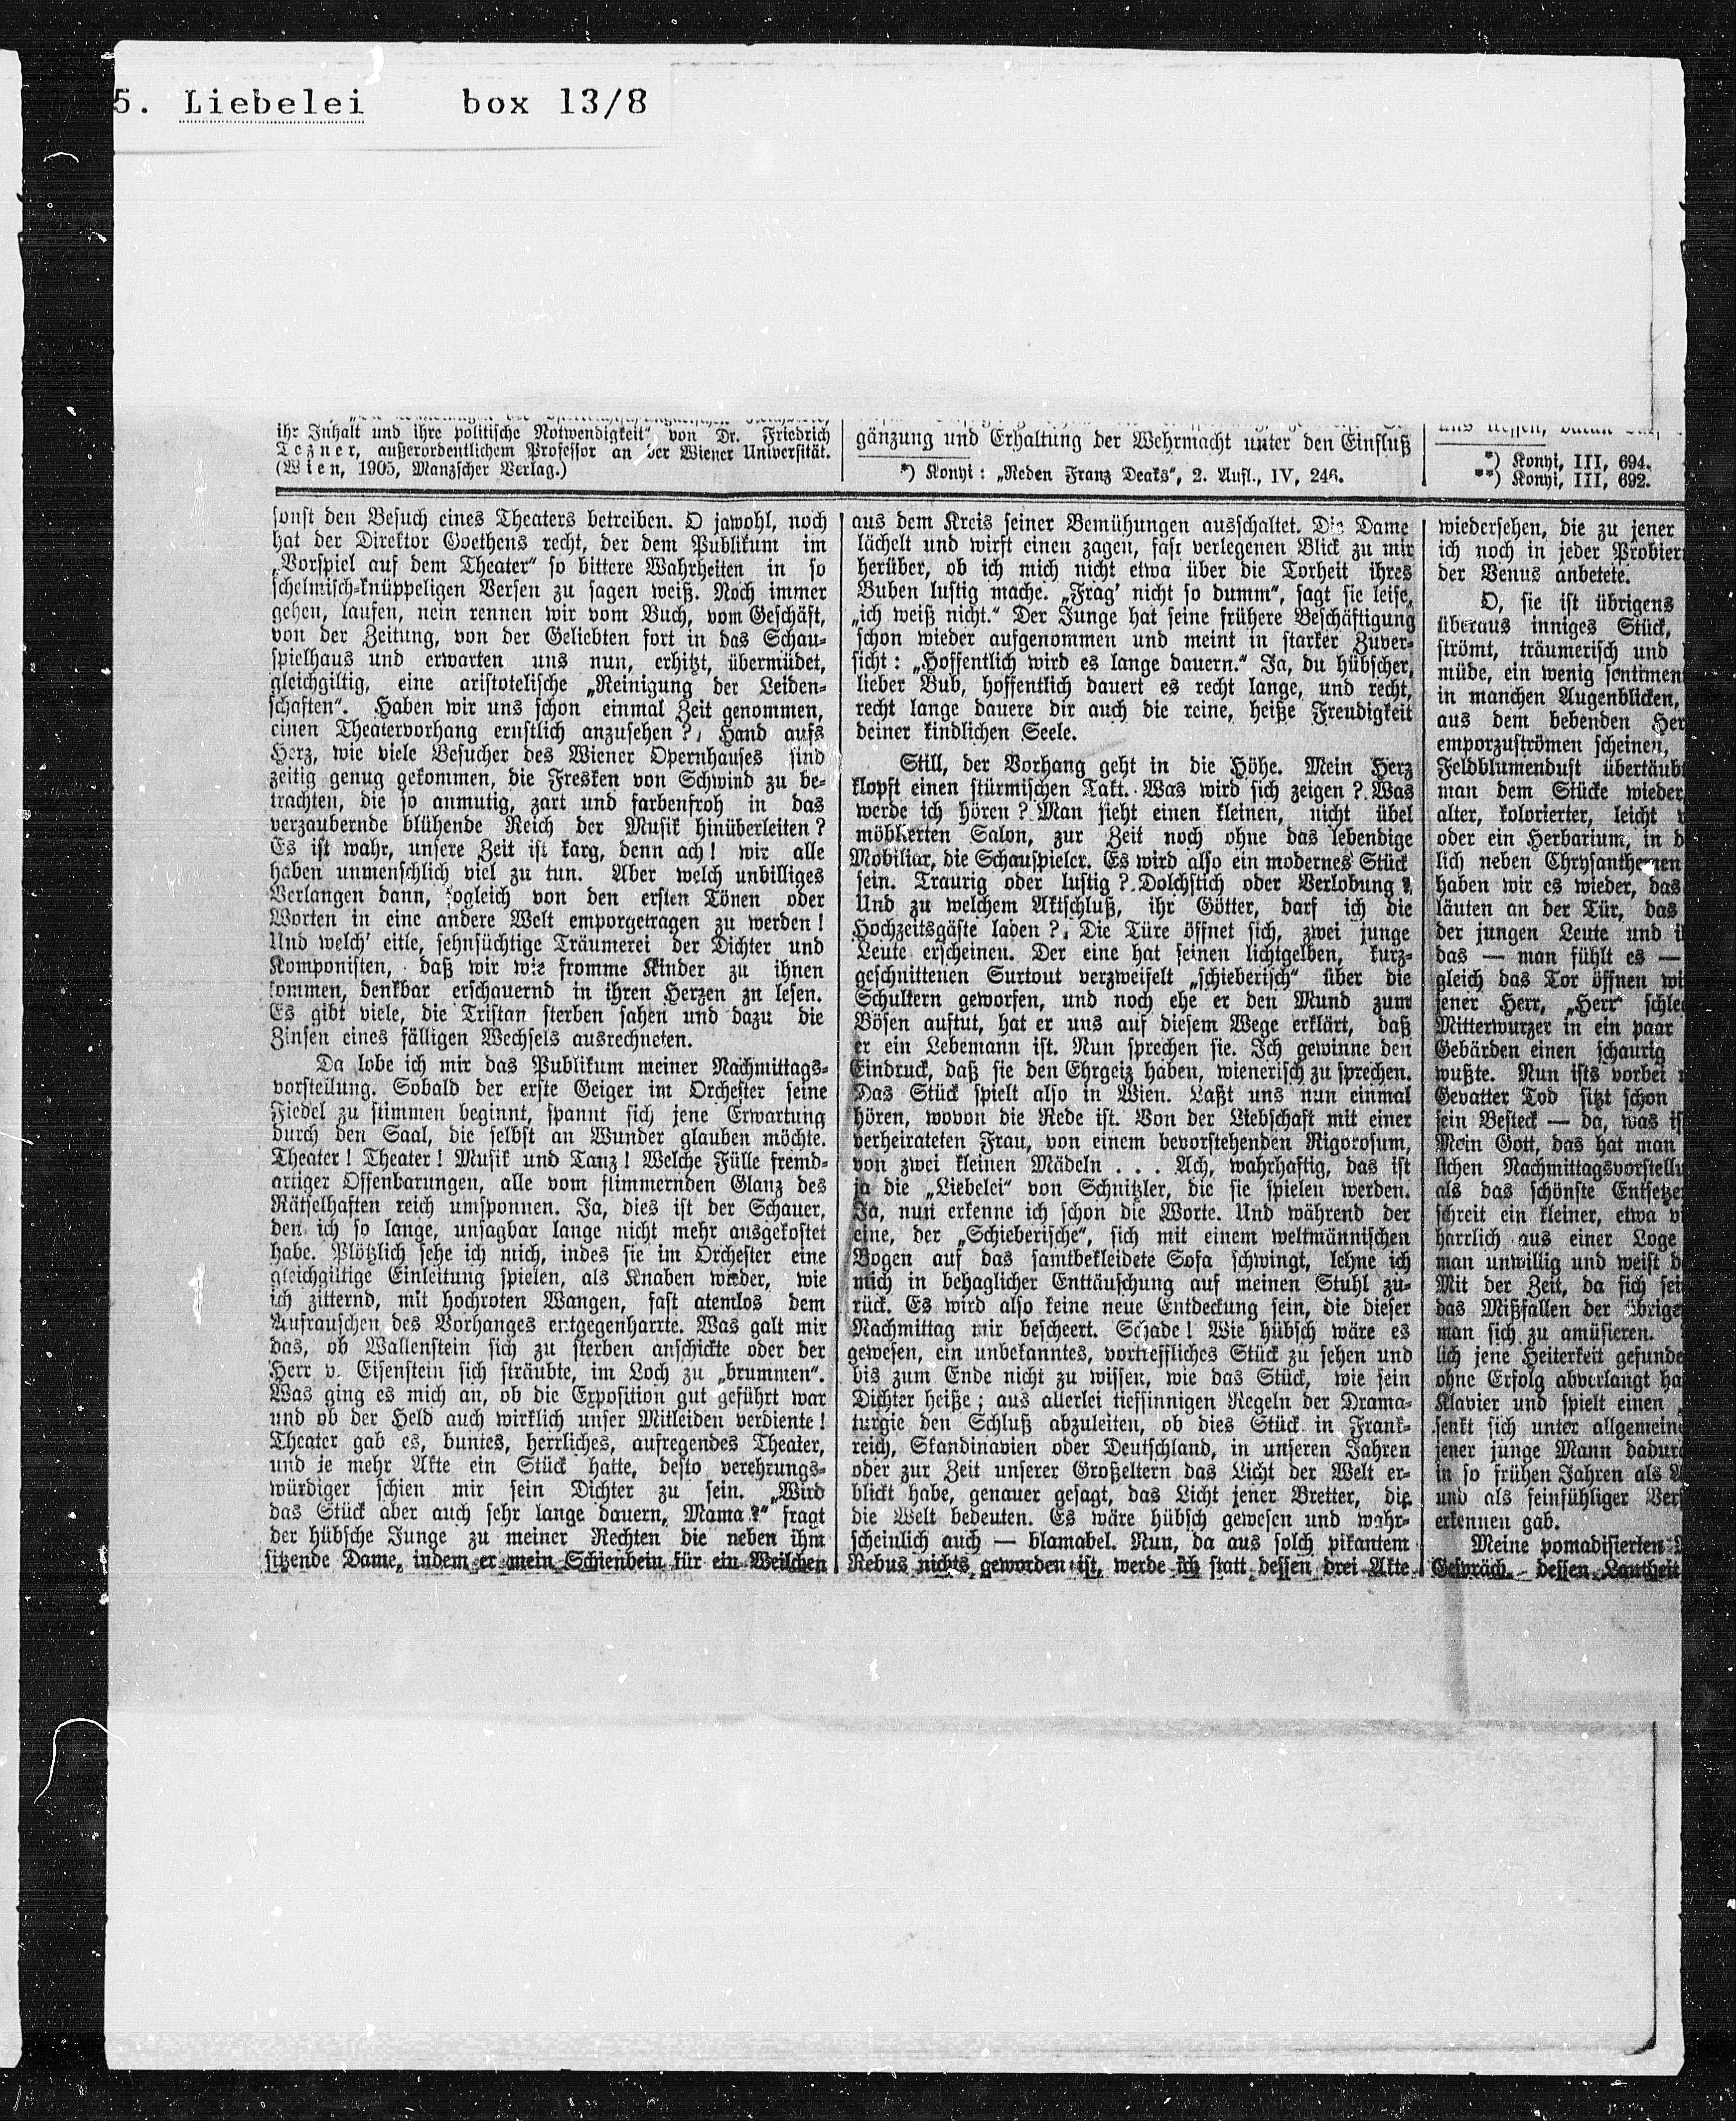 5. Liebelei box 13/8
ihr Inhalt und ihre politische Notwendigkeit", von Dr. Friedrich
Tezner, außerordentlichem Professor an der Wiener Universität.
(Wien, 1905, Manzscher Verlag.)
sonst den Besuch eines Theaters betreiben. O jawohl, noch
hat der Direktor Goethens recht, der dem Publikum im
„Vorspiel auf dem Theater" so bittere Wahrheiten in so
schelmisch-knüppeligen Versen zu sagen weiß. Noch immer
gehen, laufen, nein rennen wir vom Buch, vom Geschäft,
von der Zeitung, von der Geliebten fort in das Schau-
spielhaus und erwarten uns nun, erhitzt, übermüdet,
gleichgiltig, eine aristotelische „Reinigung der Leiden-
schaften". Haben wir uns schon einmal Zeit genommen,
einen Theatervorhang ernstlich anzusehen? Hand aufs
Herz, wie viele Besucher des Wiener Opernhauses sind
zeitig genug gekommen, die Fresken von Schwind zu be-
trachten, die so anmutig, zart und farbenfroh in das
verzaubernde blühende Reich der Musik hinüberleiten?
Es ist wahr, unsere Zeit ist karg, denn ach! wir alle
haben unmenschlich viel zu tun. Aber welch unbilliges
Verlangen dann, sogleich von den ersten Tönen oder
Worten in eine andere Welt emporgetragen zu werden!
Und welch' eitle, sehnsüchtige Träumerei der Dichter und
Komponisten, daß wir wie fromme Kinder zu ihnen
kommen, denkbar erschauernd in ihren Herzen zu lesen.
Es gibt viele, die Tristan sterben sahen und dazu die
Zinsen eines fälligen Wechsels ausrechneten.
Da lobe ich mir das Publikum meiner Nachmittags-
vorstellung. Sobald der erste Geiger im Orchester seine
Fiedel zu stimmen beginnt, spannt sich jene Erwartung
durch den Saal, die selbst an Wunder glauben möchte.
Theater! Theater! Musik und Tanz! Welche Fülle fremd-
artiger Offenbarungen, alle vom flimmernden Glanz des
Rätselhaften reich umsponnen. Ja, dies ist der Schauer,
den ich so lange, unsagbar lange nicht mehr ausgekostet
habe. Plötzlich sehe ich mich, indes sie im Orchester eine
gleichgiltige Einleitung spielen, als Knaben wieder, wie
ich zitternd, mit hochroten Wangen, fast atemlos dem
Aufrauschen des Vorhanges entgegenharrte. Was galt mir
das, ob Wallenstein sich zu sterben anschickte oder der
Herr v. Eisenstein sich sträubte, im Loch zu „brummen".
Was ging es mich an, ob die Exposition gut geführt war
und ob der Held auch wirklich unser Mitleiden verdiente!
Theater gab es, buntes, herrliches, aufregendes Theater,
und je mehr Akte ein Stück hatte, desto verehrungs-
würdiger schien mir sein Dichter zu sein. „Wird
das Stück aber auch sehr lange dauern, Mama?" fragt
der hübsche Junge zu meiner Rechten die neben ihm
sitzende Dame, indem er mein Schienbein für ein Weilchen
gänzung und Erhaltung der Wehrmacht unter den Einfluß
*) Konyi: „Reden Franz Deaks", 2. Aufl., IV, 246.
aus dem Kreis seiner Bemühungen ausschaltet. Die Dame
lächelt und wirft einen zagen, fast verlegenen Blick zu mir
herüber, ob ich mich nicht etwa über die Torheit ihres
Buben lustig mache. „Frag' nicht so dumm", sagt sie leise,
„ich weiß nicht." Der Junge hat seine frühere Beschäftigung
schon wieder aufgenommen und meint in starker Zuver-
sicht: „Hoffentlich wird es lange dauern." Ja, du hübscher,
lieber Bub, hoffentlich dauert es recht lange, und recht,
recht lange dauere dir auch die reine, heiße Freudigkeit
deiner kindlichen Seele.
Still, der Vorhang geht in die Höhe. Mein Herz
klopft einen stürmischen Takt. Was wird sich zeigen? Was
werde ich hören? Man sieht einen kleinen, nicht übel
möblierten Salon, zur Zeit noch ohne das lebendige
Mobiliar, die Schauspieler. Es wird also ein modernes Stück
sein. Traurig oder lustig? Dolchstich oder Verlobung?
Und zu welchem Aktschluß, ihr Götter, darf ich die
Hochzeitsgäste laden? Die Türe öffnet sich, zwei junge
Leute erscheinen. Der eine hat seinen lichtgelben, kurz-
geschnittenen Surtout verzweifelt „schieberisch" über die
Schultern geworfen, und noch ehe er den Mund zum
Bösen auftut, hat er uns auf diesem Wege erklärt, daß
er ein Lebemann ist. Nun sprechen sie. Ich gewinne den
Eindruck, daß sie den Ehrgeiz haben, wienerisch zu sprechen.
Das Stück spielt also in Wien. Laßt uns nun einmal
hören, wovon die Rede ist. Von der Liebschaft mit einer
verheirateten Frau, von einem bevorstehenden Rigorosum,
von zwei kleinen Mädeln . . . Ach, wahrhaftig, das ist
ja die „Liebelei" von Schnitzler, die sie spielen werden.
Ja, nun erkenne ich schon die Worte. Und während der
eine, der „Schieberische", sich mit einem weltmännischen
Bogen auf das samtbekleidete Sofa schwingt, lehne ich
mich in behaglicher Enttäuschung auf meinen Stuhl zu-
rück. Es wird also keine neue Entdeckung sein, die dieser
Nachmittag mir bescheert. Schade! Wie hübsch wäre es
gewesen, ein unbekanntes, vortreffliches Stück zu sehen und
bis zum Ende nicht zu wissen, wie das Stück, wie sein
Dichter heiße; aus allerlei tiefsinnigen Regeln der Drama-
turgie den Schluß abzuleiten, ob dies Stück in Frank-
reich, Skandinavien oder Deutschland, in unseren Jahren
oder zur Zeit unserer Großeltern das Licht der Welt er-
blickt habe, genauer gesagt, das Licht jener Bretter, die
die Welt bedeuten. Es wäre hübsch gewesen und wahr-
scheinlich auch — blamabel. Nun, da aus solch pikantem
Rebus nichts geworden ist, werde ich statt dessen drei Akte
*) Konyi, III, 694.
**) Konyi, III, 692.
wiedersehen, die zu jener
ich noch in jeder Probier
der Venus anbetete.
O, sie ist übrigens
überaus inniges Stück,
strömt, träumerisch und
müde, ein wenig sentimen
in manchen Augenblicken,
aus dem bebenden Her
emporzuströmen scheinen,
Feldblumenduft übertäub
man dem Stücke wieder
alter, kolorierter, leicht
oder ein Herbarium, in d
lich neben Chrysanthemen
haben wir es wieder, das
läuten an der Tür, das
der jungen Leute und i
das — man fühlt es —
gleich das Tor öffnen wi
jener Herr, „Herr" schle
Mitterwurzer in ein paar
Gebärden einen schaurig
wußte. Nun ists vorbei
Gevatter Tod sitzt schon
sein Besteck — da, was is
Mein Gott, das hat man
lichen Nachmittagsvorstellu
als das schönste Entsetze
schreit ein kleiner, etwa vi
harrlich aus einer Loge
man unwillig und weist d
Mit der Zeit, da sich sei
das Mißfallen der übrige
man sich zu amüsieren.
lich jene Heiterkeit gefunde
ohne Erfolg abverlangt ha
Klavier und spielt einen
senkt sich unter allgemein
jener junge Mann dadurc
in so frühen Jahren als
und als feinfühliger Ver
erkennen gab.
Meine pomadisierten
Gespräch, dessen Lautheit